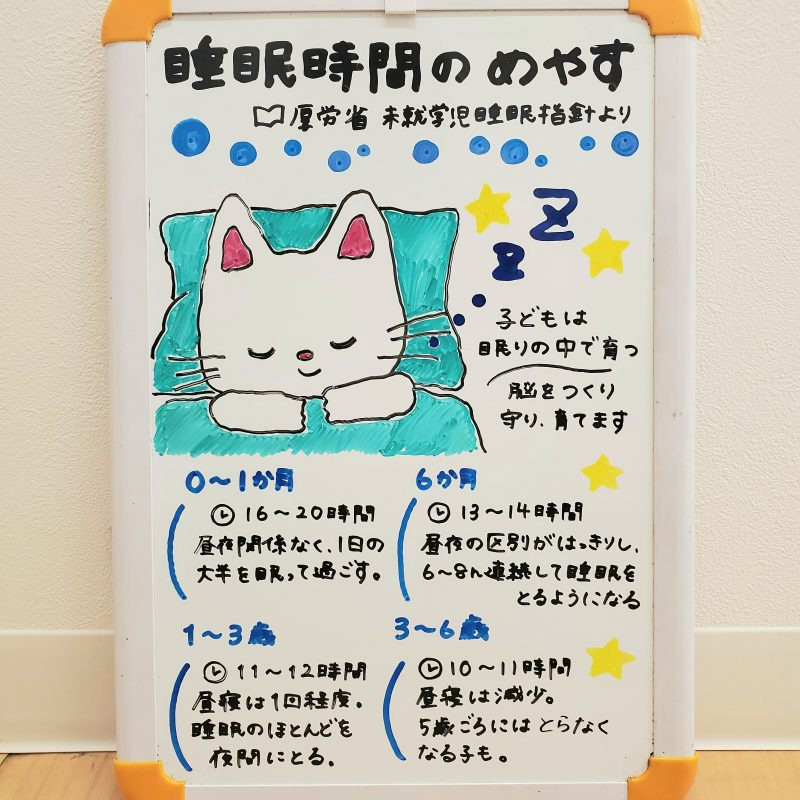 睡眠時間のめやす
厚労省 未就学児睡眠指針より
Z
Z
子どもは
眠りの中で育つ
脳をつくり
守り、育てます
0〜1か月
16〜20時間
昼夜関係なく、1日の
大半を眠って過ごす。
6か月
13〜14時間
昼夜の区別がはっきりし、
6〜8h連続して睡眠を
とるようになる
1〜3歳
11〜12時間
昼寝は1回程度。
睡眠のほとんどを
夜間にとる。
3〜6歳
10〜11時間
昼寝は減少。
5歳ごろにはとらなく
なる子も。